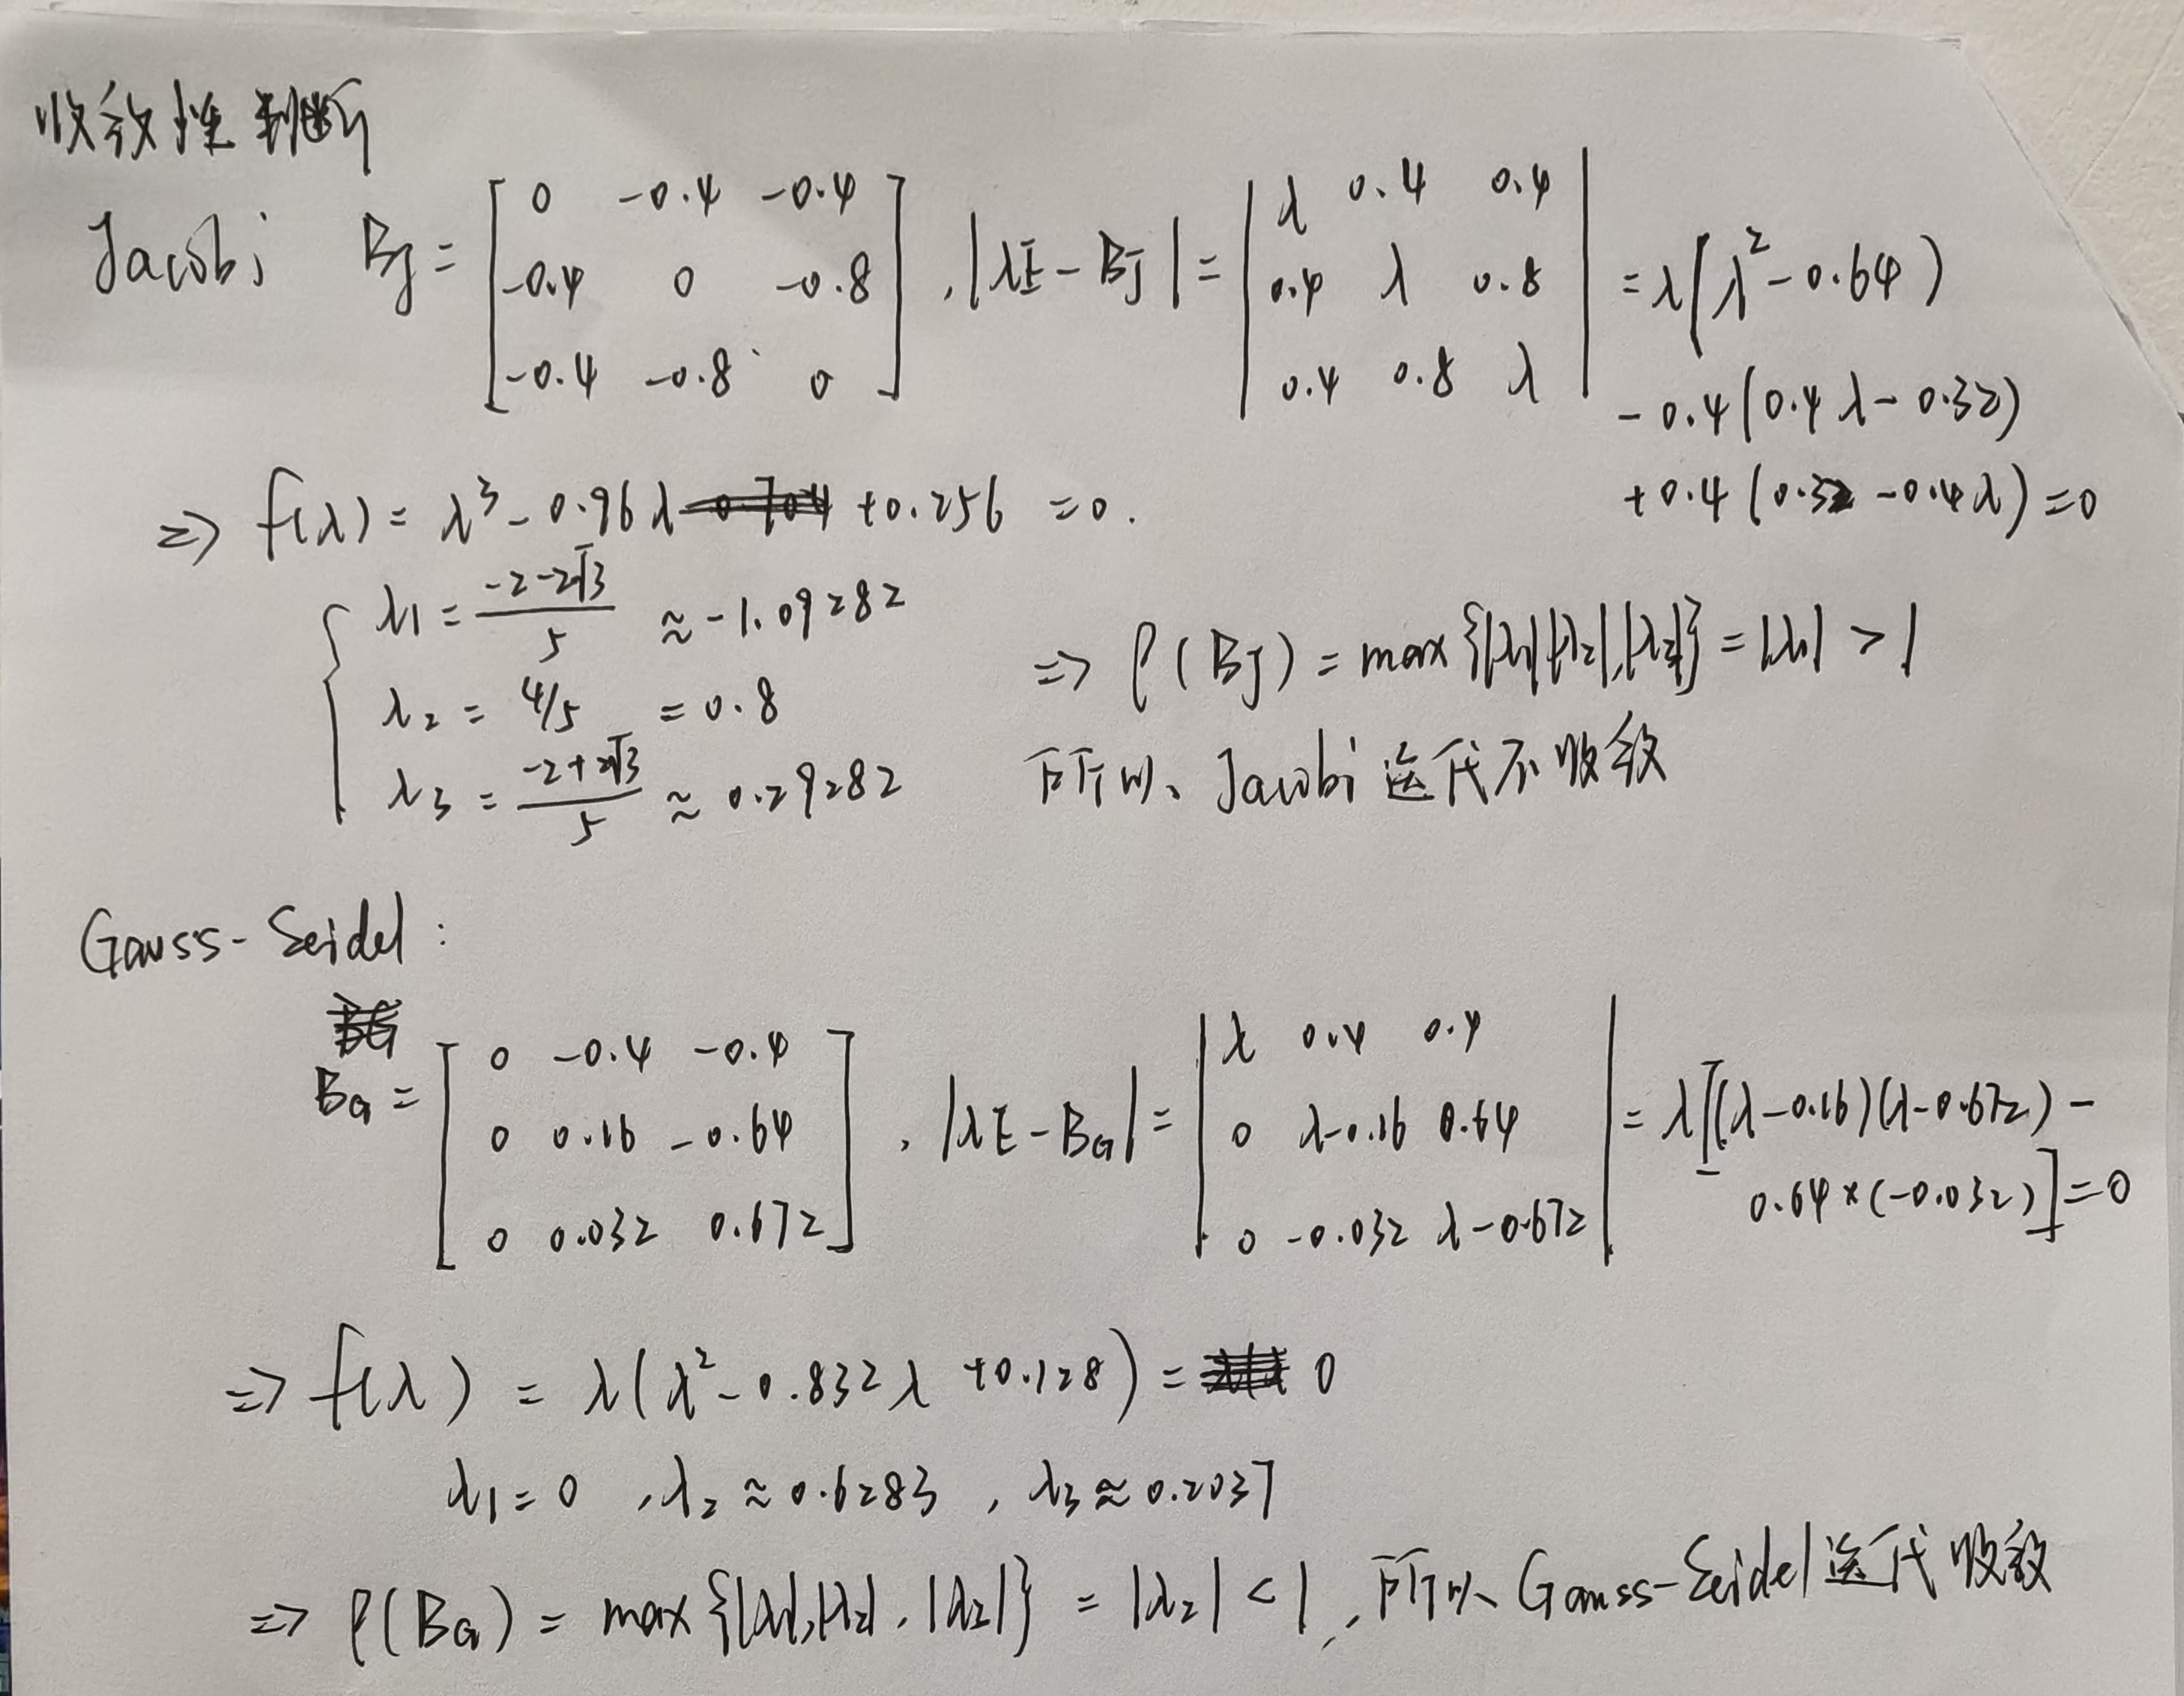 收敛性判断
Jacobi B_J = [0 -0.4 -0.4; -0.4 0 -0.8; -0.4 -0.8 0], |λE - B_J| = |λ 0.4 0.4; 0.4 λ 0.8; 0.4 0.8 λ| = λ(λ² - 0.64)
- 0.4(0.4λ - 0.32)
+ 0.4(0.32 - 0.4λ) = 0
⇒ f(λ) = λ³ - 0.96λ + 0.256 = 0.
λ1 = (-2-2√3)/5 ≈ -1.09282
λ2 = 4/5 = 0.8
λ3 = (-2+2√3)/5 ≈ 0.29282
⇒ ρ(B_J) = max{|λ1|,|λ2|,|λ3|} = |λ1| > 1
所以、Jacobi迭代不收敛
Gauss-Seidel:
B_G = [0 -0.4 -0.4; 0 0.16 -0.64; 0 0.032 0.672], |λE - B_G| = |λ 0.4 0.4; 0 λ-0.16 0.64; 0 -0.032 λ-0.672| = λ[(λ-0.16)(λ-0.672) -
0.64×(-0.032)] = 0
⇒ f(λ) = λ(λ² - 0.832λ + 0.128) = 0
λ1 = 0, λ2 ≈ 0.6283, λ3 ≈ 0.2037
⇒ ρ(B_G) = max{|λ1|,|λ2|,|λ2|} = |λ2| < 1, 所以、Gauss-Seidel迭代收敛